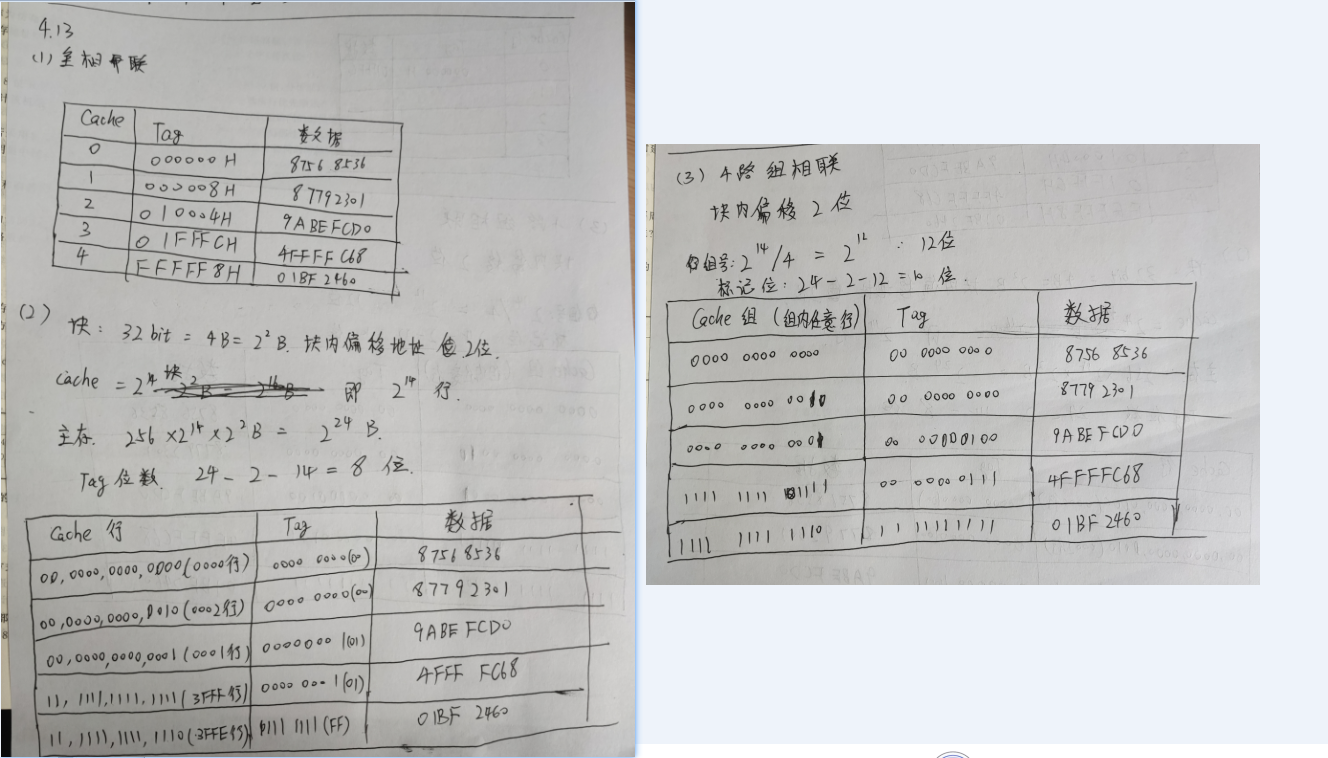 4.13
(1) 全相联
Cache Tag 数据
0 000000H 8756 8536
1 000008H 87792301
2 010004H 9ABEFCD0
3 01FFFCH 4FFFFC68
4 FFFFF8H 01BF 2460
(2)
块: 32bit = 4B = 2²B. 块内偏移地址 2位.
Cache = 2¹⁴块 即 2¹⁴ 行.
主存. 256×2¹⁴×2²B = 2²⁴ B.
Tag位数 24-2-14=8 位.
Cache 行 Tag 数据
00,0000,0000,0000(0000行) 0000 0000(00) 8756 8536
00,0000,0000,0010(0002行) 0000 0000(00) 87792301
00,0000,0000,0001(0001行) 0000000 1(01) 9ABE FCD0
11,1111,1111,1111(3FFF行) 0000 0001(01) 4FFF FC68
11,1111,1111,1110(3FFE行) 1111 1111(FF) 01BF 2460
(3) 4路组相联
块内偏移 2位
组号: 2¹⁴/4 = 2¹² : 12位
标记位: 24-2-12=10 位.
Cache组 (组内任意行) Tag 数据
0000 0000 0000 00 0000 0000 8756 8536
0000 0000 0010 00 0000 0000 8779 2301
0000 0000 0001 00 00000100 9ABEFCD0
1111 1111 1111 00 0000 0111 4FFFFC68
1111 1111 1110 11 11111111 01BF 2460